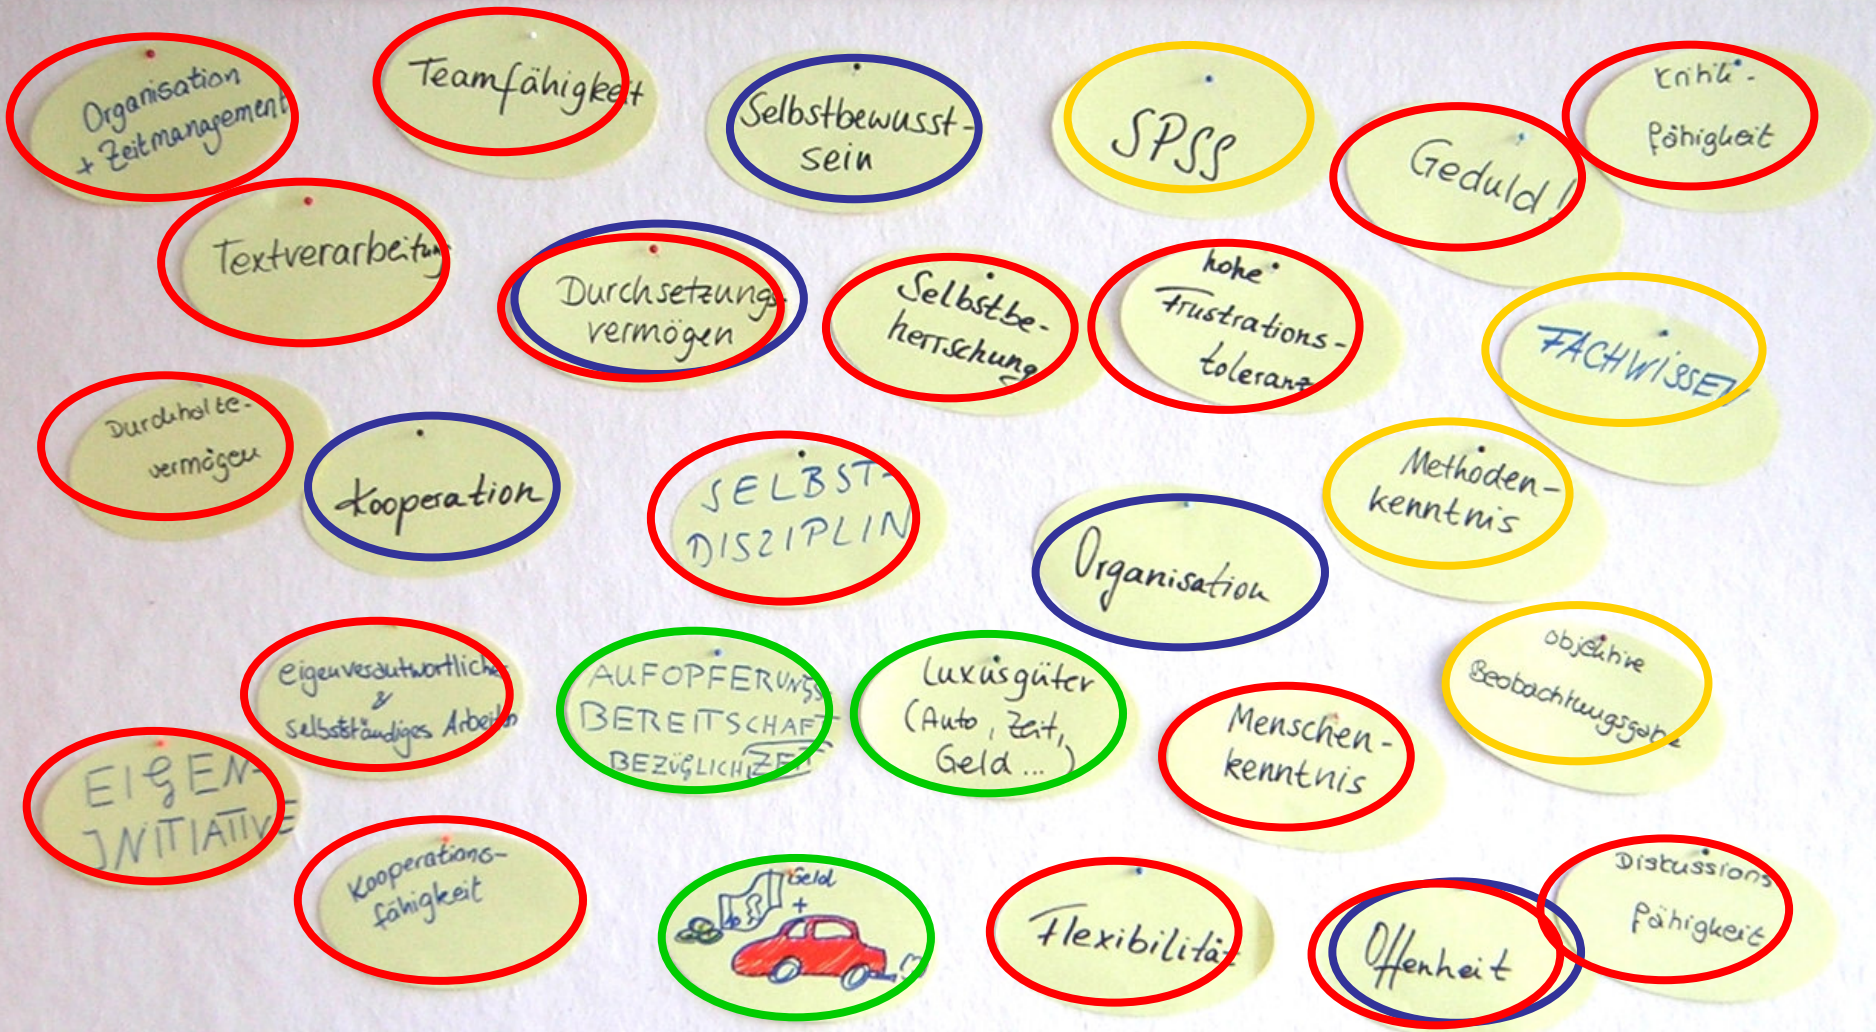 Organisation
+ Zeitmanagement
Teamfähigkeit
Selbstbewusst-
sein
SPSS
Geduld!
Kritik-
fähigkeit
Textverarbeitung
Durchsetzungs-
vermögen
Selbstbe-
herrschung
hohe
Frustrations-
toleranz
FACHWISSEN
Durchhalte-
vermögen
Kooperation
SELBST-
DISZIPLIN
Organisation
Methoden-
kenntnis
eigenverantwortliches
&
selbstständiges Arbeiten
AUFOPFERUNGS-
BEREITSCHAFT
BEZÜGLICH ZEIT
Luxusgüter
(Auto, Zeit,
Geld...)
Menschen-
kenntnis
objektive
Beobachtungsgabe
EIGEN-
INITIATIVE
Kooperations-
fähigkeit
Geld
+
Flexibilität
Offenheit
Diskussions
fähigkeit